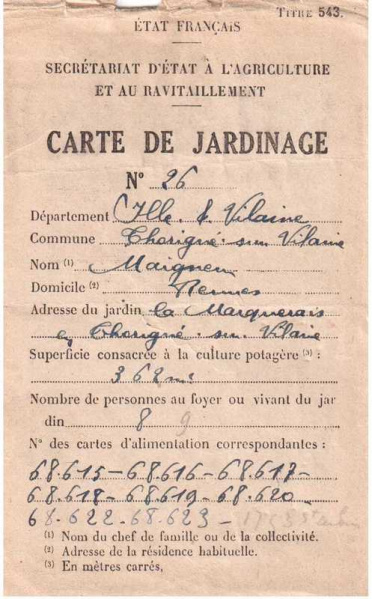 TITRE 543.
ÉTAT FRANÇAIS
SECRÉTARIAT D'ÉTAT À L'AGRICULTURE
ET AU RAVITAILLEMENT
CARTE DE JARDINAGE
N° 26
Département Ille & Vilaine
Commune Thorigné-sur-Vilaine
Nom (1) Maignen
Domicile (2) Rennes
Adresse du jardin la Marquerais
en Thorigné-sur-Vilaine
Superficie consacrée à la culture potagère (3) :
362 m²
Nombre de personnes au foyer ou vivant du jar
din 8 9
N° des cartes d'alimentation correspondantes :
68.615 - 68.616 - 68.617 -
68.618 - 68.619 - 68.620
68.622 - 68.623 -
(1) Nom du chef de famille ou de la collectivité.
(2) Adresse de la résidence habituelle.
(3) En mètres carrés,